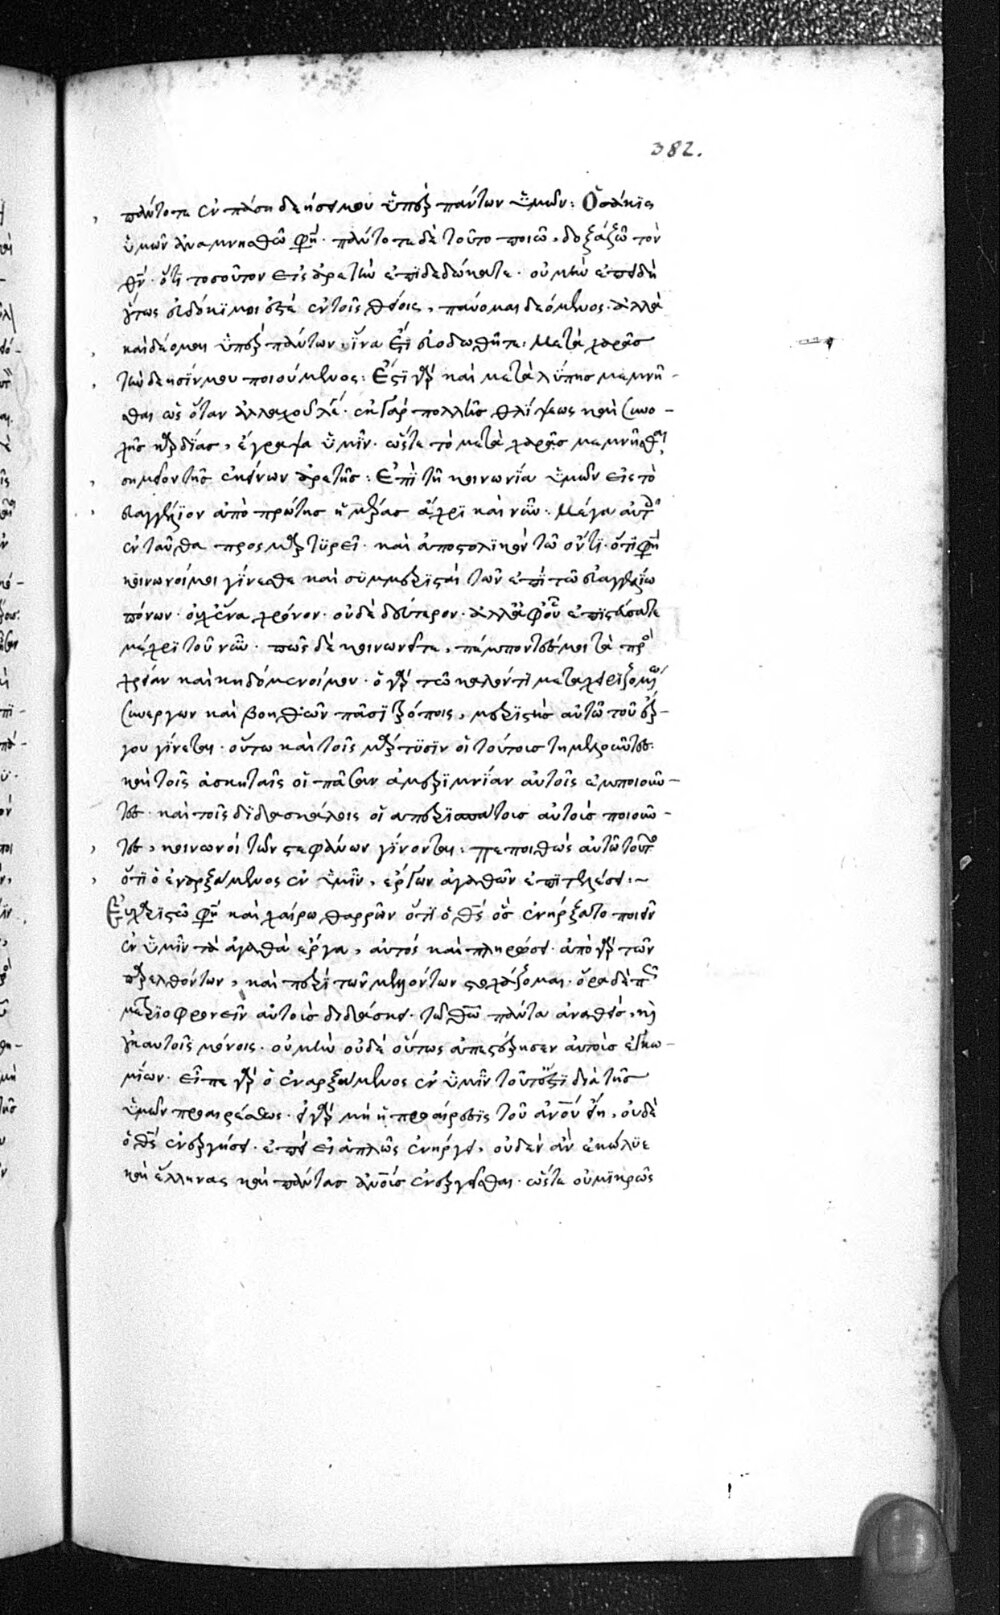 382.
πάντοτε ἐν πάση δεήσει μου ὑπὲρ πάντων ὑμῶν: Ὁσάκις
ὑμῶν ἀναμνησθῶ φη· πάντοτε δὲ τοῦτο ποιῶ, δοξάζω τὸν
θν· ὅτι τοσοῦτον εἰς ἀρετὴν ἐπιδεδώκατε· οὐ μὴν ἐπειδὴ
οὕτως εὐδόκιμοι ἐστὲ ἐν τοῖς θείοις, παύομαι δεόμενος. ἀλλὰ
καὶ δέομαι ὑπὲρ πάντων, ἵνα ἔτι εὐοδωθῆτε: Μετὰ χαρᾶς
τὴν δέησίν μου ποιούμενος: Ἔστι γὰρ καὶ μετὰ λύπης μεμνῆ-
σθαι ὡς ὅταν ἀλλαχοῦ λέγει· ἐκ γὰρ πολλῆς θλίψεως καὶ συνο-
χῆς καρδίας, ἔγραψα ὑμῖν· ὥστε τὸ μετὰ χαρᾶς μεμνῆσθαι
σημεῖον τῆς ἐκείνων ἀρετῆς: Ἐπὶ τῇ κοινωνία ὑμῶν εἰς τὸ
εὐαγγέλιον ἀπὸ πρώτης ἡμέρας ἄχρι καὶ νῦν: Μέγα αὐτοῖς
ἐνταῦθα προσμαρτυρεῖ· καὶ ἀποστολικὸν τῶ ὄντι· ὅτι φη
κοινωνοί μοι γίνεσθε καὶ συμμερισταὶ τῶν ἐπὶ τῶ εὐαγγελίω
πόνων· οὐχ ἕνα χρόνον· οὐδὲ δεύτερον· ἀλλ' ἀφ' οὗ ἐπιστεύσατε
μέχρι τοῦ νῦν· πῶς δὲ κοινωνεῖτε, πέμποντές μοι τὰ πρὸς
χρείαν καὶ κηδόμενοί μου· ὁ γὰρ τῶ καλόν τι μεταχειριζομένω
συνεργῶν καὶ βοηθῶν πᾶσι τρόποις, μεριστὴς αὐτῶ τοῦ ἔρ-
γου γίνεται· οὕτω καὶ τοῖς μάρτυσιν οἱ τούτους τημελοῦντες.
καὶ τοῖς ἀσκηταῖς οἱ πᾶσαν ἀμεριμνίαν αὐτοῖς ἐμποιοῦν-
τες· καὶ τοῖς διδασκάλοις οἱ ἀπερισπάστους αὐτοὺς ποιοῦν-
τες, κοινωνοὶ τῶν στεφάνων γίνονται. Πεποιθὼς αὐτὸ τοῦτο
ὅτι ὁ ἐναρξάμενος ἐν ὑμῖν, ἔργον ἀγαθὸν ἐπιτελέσει:~
Εὐχαριστῶ φη καὶ χαίρω θαρρῶν ὅτι ὁ θς ὃς ἐνήρξατο ποιεῖν
ἐν ὑμῖν τὰ ἀγαθὰ ἔργα, αὐτὸς καὶ πληρώσει· ἀπὸ γὰρ τῶν
παρελθόντων, καὶ περὶ τῶν μελλόντων στοχάζομαι· ὅρα δὲ πῶς
μετριοφρονεῖν αὐτοὺς διδάσκει· τῶ θω πάντα ἀναθείς, καὶ
οὐκ αὐτοῖς μόνοις· οὐ μὴν οὐδὲ οὕτως ἀπεστέρησεν αὐτοὺς ἐγκω-
μίων· εἶπε γὰρ ὁ ἐναρξάμενος ἐν ὑμῖν τοῦτέστι διὰ τῆς
ὑμῶν προαιρέσεως. εἰ γὰρ μὴ ἡ προαίρεσις τοῦ ανου ἦν, οὐδὲ
ὁ θς ἐνεργήσει· ἐπεὶ εἰ ἁπλῶς ἐνήργει, οὐδὲν ἂν ἐκώλυε
καὶ ἕλληνας καὶ πάντας ανους ἐνεργεῖσθαι· ὥστε οὐ μικρῶς